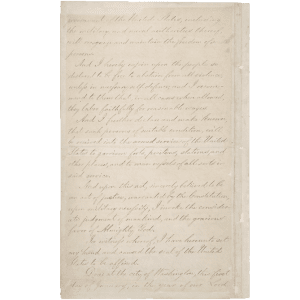 government of the United States, including
the military and naval authorities thereof,
will recognize and maintain the freedom of said
persons.
And I hereby enjoin upon the people so
declared to be free to abstain from all violence,
unless in necessary self-defence; and I recommend
to them that, in all cases when allowed,
they labor faithfully for reasonable wages.
And I further declare and make known,
that such persons of suitable condition, will
be received into the armed service of the United
States to garrison forts, positions, stations, and
other places, and to man vessels of all sorts in
said service.
And upon this act, sincerely believed to be
an act of justice, warranted by the Constitution,
upon military necessity, I invoke the considerate
judgment of mankind, and the gracious
favor of Almighty God.
In witness whereof, I have hereunto set
my hand and caused the seal of the United
States to be affixed.
Done at the city of Washington, this first
day of January, in the year of our Lord